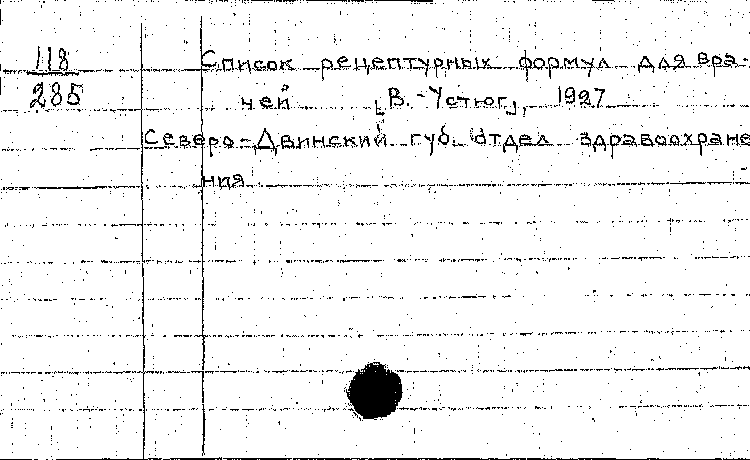 118
285
Список рецептурных формул для вра-
чей [В.-Устюг], 1927
Северо-Двинский губ. отдел здравоохране-
ния